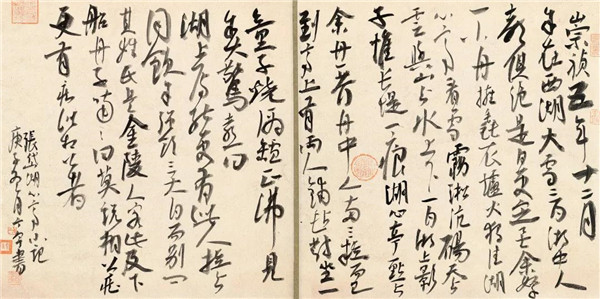 崇禎五年十二月
余在西湖大雪三日湖中人
俱絕是日更定矣余拏
一小舟擁毳衣爐火獨往湖
心亭看雪霧淞沆碭天與
雲與山與水上下一白湖上影
子惟長堤一痕湖心亭一點與
余舟一芥舟中人兩三粒而已
到亭上有兩人鋪氈對坐一
童子燒酒爐正沸見
余大驚喜曰
湖上焉得更有此人拉余
同飲余強飲三大白而別問
其姓氏是金陵人客此及下
船舟子喃喃曰莫說相公癡
更有癡似相公者
張岱湖心亭小記
庚子冬月書